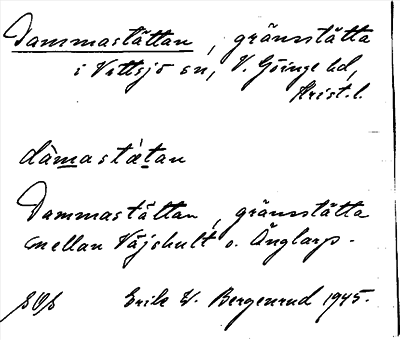 Dammastättan, gränsstätta
i Vittsjö sn, V. Göinge hd,
Krist. l.
dàmastæ̀tan
Dammastättan, gränsstätta
mellan Väjshult o. Änglarp.
Erik W. Bergenrud 1945.